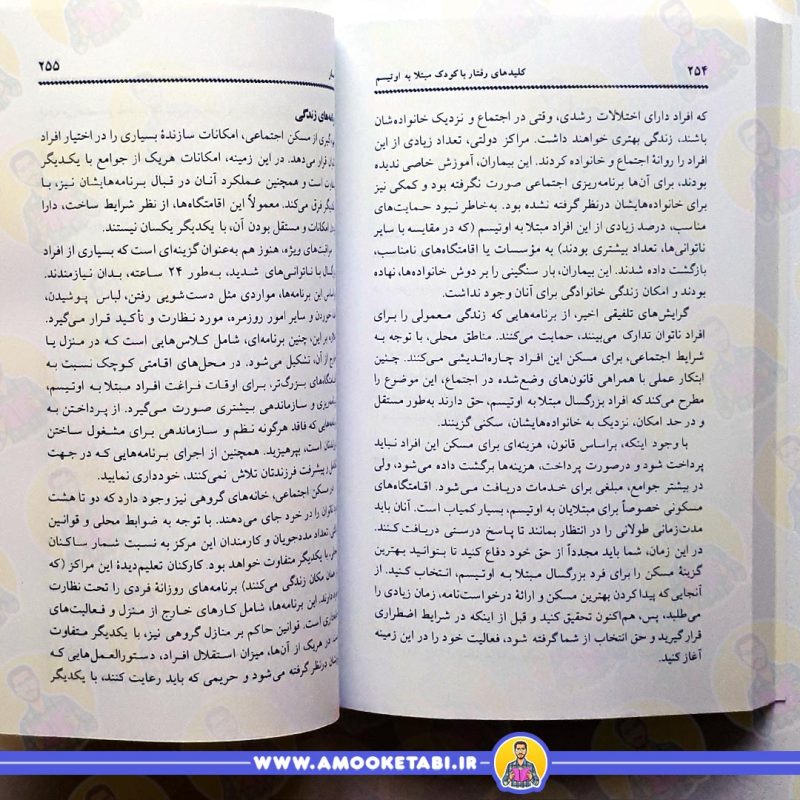 ۲۵۴
کلیدهای رفتار با کودک مبتلا به اوتیسم
که افراد دارای اختلالات رشدی، وقتی در اجتماع و نزدیک خانواده‌شان
باشند، زندگی بهتری خواهند داشت. مراکز دولتی، تعداد زیادی از این
افراد را روانهٔ اجتماع و خانواده کردند. این بیماران، آموزش خاصی ندیده
بودند، برای آن‌ها برنامه‌ریزی اجتماعی صورت نگرفته بود و کمکی نیز
برای خانواده‌هایشان درنظر گرفته نشده بود. به‌خاطر نبود حمایت‌های
مناسب، درصد زیادی از این افراد مبتلا به اوتیسم (که در مقایسه با سایر
ناتوانی‌ها، تعداد بیشتری بودند) به مؤسسات یا اقامتگاه‌های نامناسب،
بازگشت داده شدند. این بیماران، بار سنگینی را بر دوش خانواده‌ها، نهاده
بودند و امکان زندگی خانوادگی برای آنان وجود نداشت.
گرایش‌های تلفیقی اخیر، از برنامه‌هایی که زندگی معمولی را برای
افراد ناتوان تدارک می‌بینند، حمایت می‌کنند. مناطق محلی، با توجه به
شرایط اجتماعی، برای مسکن این افراد چاره‌اندیشی می‌کنند. چنین
ابتکار عملی با همراهی قانون‌های وضع‌شده در اجتماع، این موضوع را
مطرح می‌کند که افراد بزرگسال مبتلا به اوتیسم، حق دارند به‌طور مستقل
و در حد امکان، نزدیک به خانواده‌هایشان، سکنی گزینند.
با وجود اینکه، براساس قانون، هزینه‌ای برای مسکن این افراد نباید
پرداخت شود و درصورت پرداخت، هزینه‌ها برگشت داده می‌شود، ولی
در بیشتر جوامع، مبلغی برای خدمات دریافت می‌شود. اقامتگاه‌های
مسکونی خصوصاً برای مبتلایان به اوتیسم، بسیار کمیاب است. آنان باید
مدت‌زمانی طولانی را در انتظار بمانند تا پاسخ درستی دریافت کنند.
در این زمان، شما باید مجدداً از حق خود دفاع کنید تا بتوانید بهترین
گزینهٔ مسکن را برای فرد بزرگسال مبتلا به اوتیسم، انتخاب کنید. از
آنجایی که پیدا کردن بهترین مسکن و ارائهٔ درخواست‌نامه، زمان زیادی را
می‌طلبد، پس، هم‌اکنون تحقیق کنید و قبل از اینکه در شرایط اضطراری
قرار گیرید و حق انتخاب از شما گرفته شود، فعالیت خود را در این زمینه
آغاز کنید.
۲۵۵
زندگی
از مسکن اجتماعی، امکانات سازندهٔ بسیاری را در اختیار افراد
قرار می‌دهد. در این زمینه، امکانات هریک از جوامع با یکدیگر
است و همچنین عملکرد آنان در قبال برنامه‌هایشان نیز، با
فرق می‌کند. معمولاً این اقامتگاه‌ها، از نظر شرایط ساخت، دارا
امکانات و مستقل بودن آن، با یکدیگر یکسان نیستند.
مراقبت‌های ویژه، هنوز هم به‌عنوان گزینه‌ای است که بسیاری از افراد
با ناتوانی‌های شدید، به‌طور ۲۴ ساعته، بدان نیازمندند.
این برنامه‌ها، مواردی مثل دست‌شویی رفتن، لباس پوشیدن،
خوردن و سایر امور روزمره، مورد نظارت و تأکید قرار می‌گیرد.
بر این، چنین برنامه‌ای، شامل کلاس‌هایی است که در منزل یا
از آن، تشکیل می‌شود. در محل‌های اقامتی کوچک نسبت به
بزرگ‌تر، برای اوقات فراغت افراد مبتلا به اوتیسم،
و سازماندهی بیشتری صورت می‌گیرد. از پرداختن به
که فاقد هرگونه نظم و سازماندهی برای مشغول ساختن
است، بپرهیزید. همچنین از اجرای برنامه‌هایی که در جهت
پیشرفت فرزندتان تلاش نمی‌کنند، خودداری نمایید.
در مسکن اجتماعی، خانه‌های گروهی نیز وجود دارد که دو تا هشت
را در خرد جای می‌دهند. با توجه به ضوابط محلی و قوانین
تعداد مددجویان و کارمندان این مرکز به نسبت شمار ساکنان
با یکدیگر متفاوت خواهد بود. کارکنان تعلیم‌دیدهٔ این مراکز (که
مکان زندگی می‌کنند) برنامه‌های روزانهٔ فردی را تحت نظارت
این برنامه‌ها، شامل کارهای خارج از منزل و فعالیت‌های
است. قوانین حاکم بر منازل گروهی نیز، با یکدیگر متفاوت
در هریک از آن‌ها، میزان استقلال افراد، دستورالعمل‌هایی که
درنظر گرفته می‌شود و حریمی که باید رعایت کنند، با یکدیگر
WWW.AMOOKETABI.IR